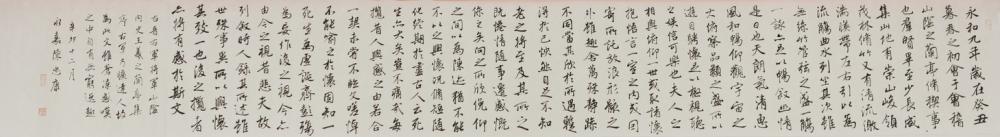 永和九年歲在癸丑
暮春之初會于會稽
山陰之蘭亭脩稧事
也羣賢畢至少長咸
集此地有崇山峻領
茂林脩竹又有清流激
湍暎帶左右引以為
流觴曲水列坐其次雖
無絲竹管弦之盛一
觴一詠亦足以暢敘幽情
是日也天朗氣清惠
風和暢仰觀宇宙之
大俯察品類之盛所以
遊目騁懷足以極視聽
之娛信可樂也夫人之
相與俯仰一世或取諸懷
抱悟言一室之內或因
寄所託放浪形骸之
外雖趣舍萬殊靜躁
不同當其欣於所遇蹔
得於己怏然自足不知
老之將至及其所之
既惓情隨事遷感慨
係之矣向之所欣俛仰
之間以為陳迹猶不能
不以之興懷況脩短隨
化終期於盡古人云死
生亦大矣豈不痛哉每
攬昔人興感之由若合
一契未嘗不臨文嗟悼
不能喻之於懷固知一
死生為虛誕齊彭殤
為妄作後之視今亦
由今之視昔悲夫故
列敘時人錄其所述雖
世殊事異所以興懷
其致一也後之攬者
亦將有感於斯文
右晉右軍將軍山陰
內史王羲之蘭亭集
序右軍乃達人
為此文雅
之中自有無窮逸趣
辛卯十二月
陳忠康